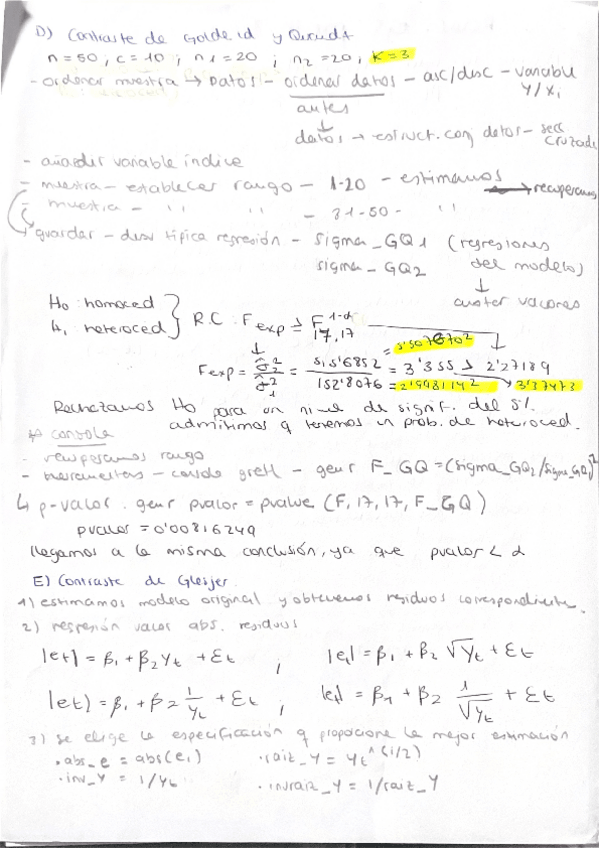 D) Contraste de Goldfeld y Quandt
n=50 ; c=10 ; n1=20 ; n2=20 ; K=3
- ordenar muestra → Datos - ordenar datos - asc/desc - variable Y/X1
antes
↓
datos → estruct. conj datos - secc. cruzada
- añadir variable índice
- muestra - establecer rango - 1-20 - estimamos → recuperamos
- muestra - '' '' - 31-50 - ''
↳ guardar - desv típica regresión - sigma_GQ1 (regresiones
sigma_GQ2 del modelo)
↓
Ho: homoced
H1: heteroced } R.C : Fexp ≥ F 1-α 17,17
Fexp = σ̂²2 / σ̂²1 = 515'6852 / 152'8076 = 3'355 > 2'27189
→ 3'37473
Rechazamos Ho para un nivel de signif. del 5%.
admitimos q tenemos un prob. de heteroced.
* consola
- recuperamos rango
- herramientas - consola gretl - genr F_GQ = (sigma_GQ2/sigma_GQ1)^2
↳ p-valor. genr pvalor = pvalue (F, 17, 17, F_GQ)
pvalor = 0'00816249
llegamos a la misma conclusión, ya que pvalor < α
E) Contraste de Glesjer.
1) estimamos modelo original y obtenemos residuos correspondiente.
2) regresión valor abs. residuos
|et| = β1 + β2 Yt + εt ; |et| = β1 + β2 √Yt + εt
|et| = β1 + β2 1/Yt + εt ; |et| = β1 + β2 1/√Yt + εt
3) se elige la especificación q proporcione la mejor estimación
• abs_e = abs(e1) • raiz_Y = Yt^(1/2)
• inv_Y = 1/Yt • invraiz_Y = 1/raiz_Y